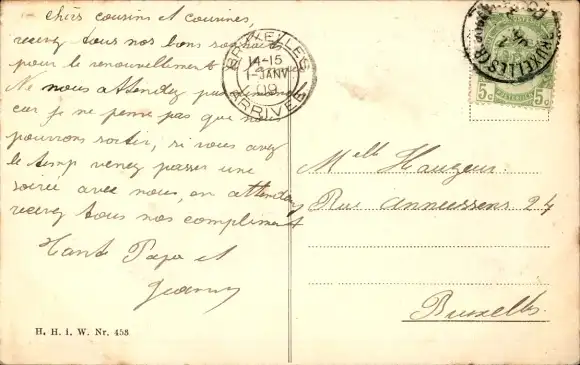 chers cousins et cousines,
recevez tous nos bons souhaits
pour le renouvellement
Ne nous attendez pas
car je ne pense pas que nous
pourrons sortir, si vous avez
le temp venez passer une
soirée avec nous, en attendant
recevez tous nos compliment
Tante Papa et
Jeanny
H. H. i. W. Nr. 453
BRUXELLES
14-15
1-JANV
09
ARRIVÉE
BRUXELLES
5c 5c
Melle Hauzeur
Rue Anneessens 24
Bruxelles